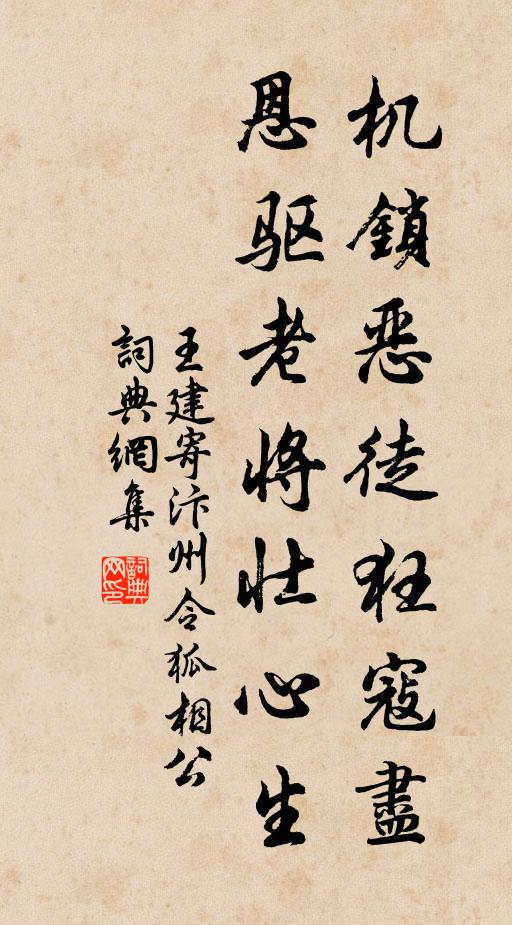 机鎖恶徒狂寇盡
恩驱老将壮心生
王建寄汴州令狐相公
詞典網集
詞典网印